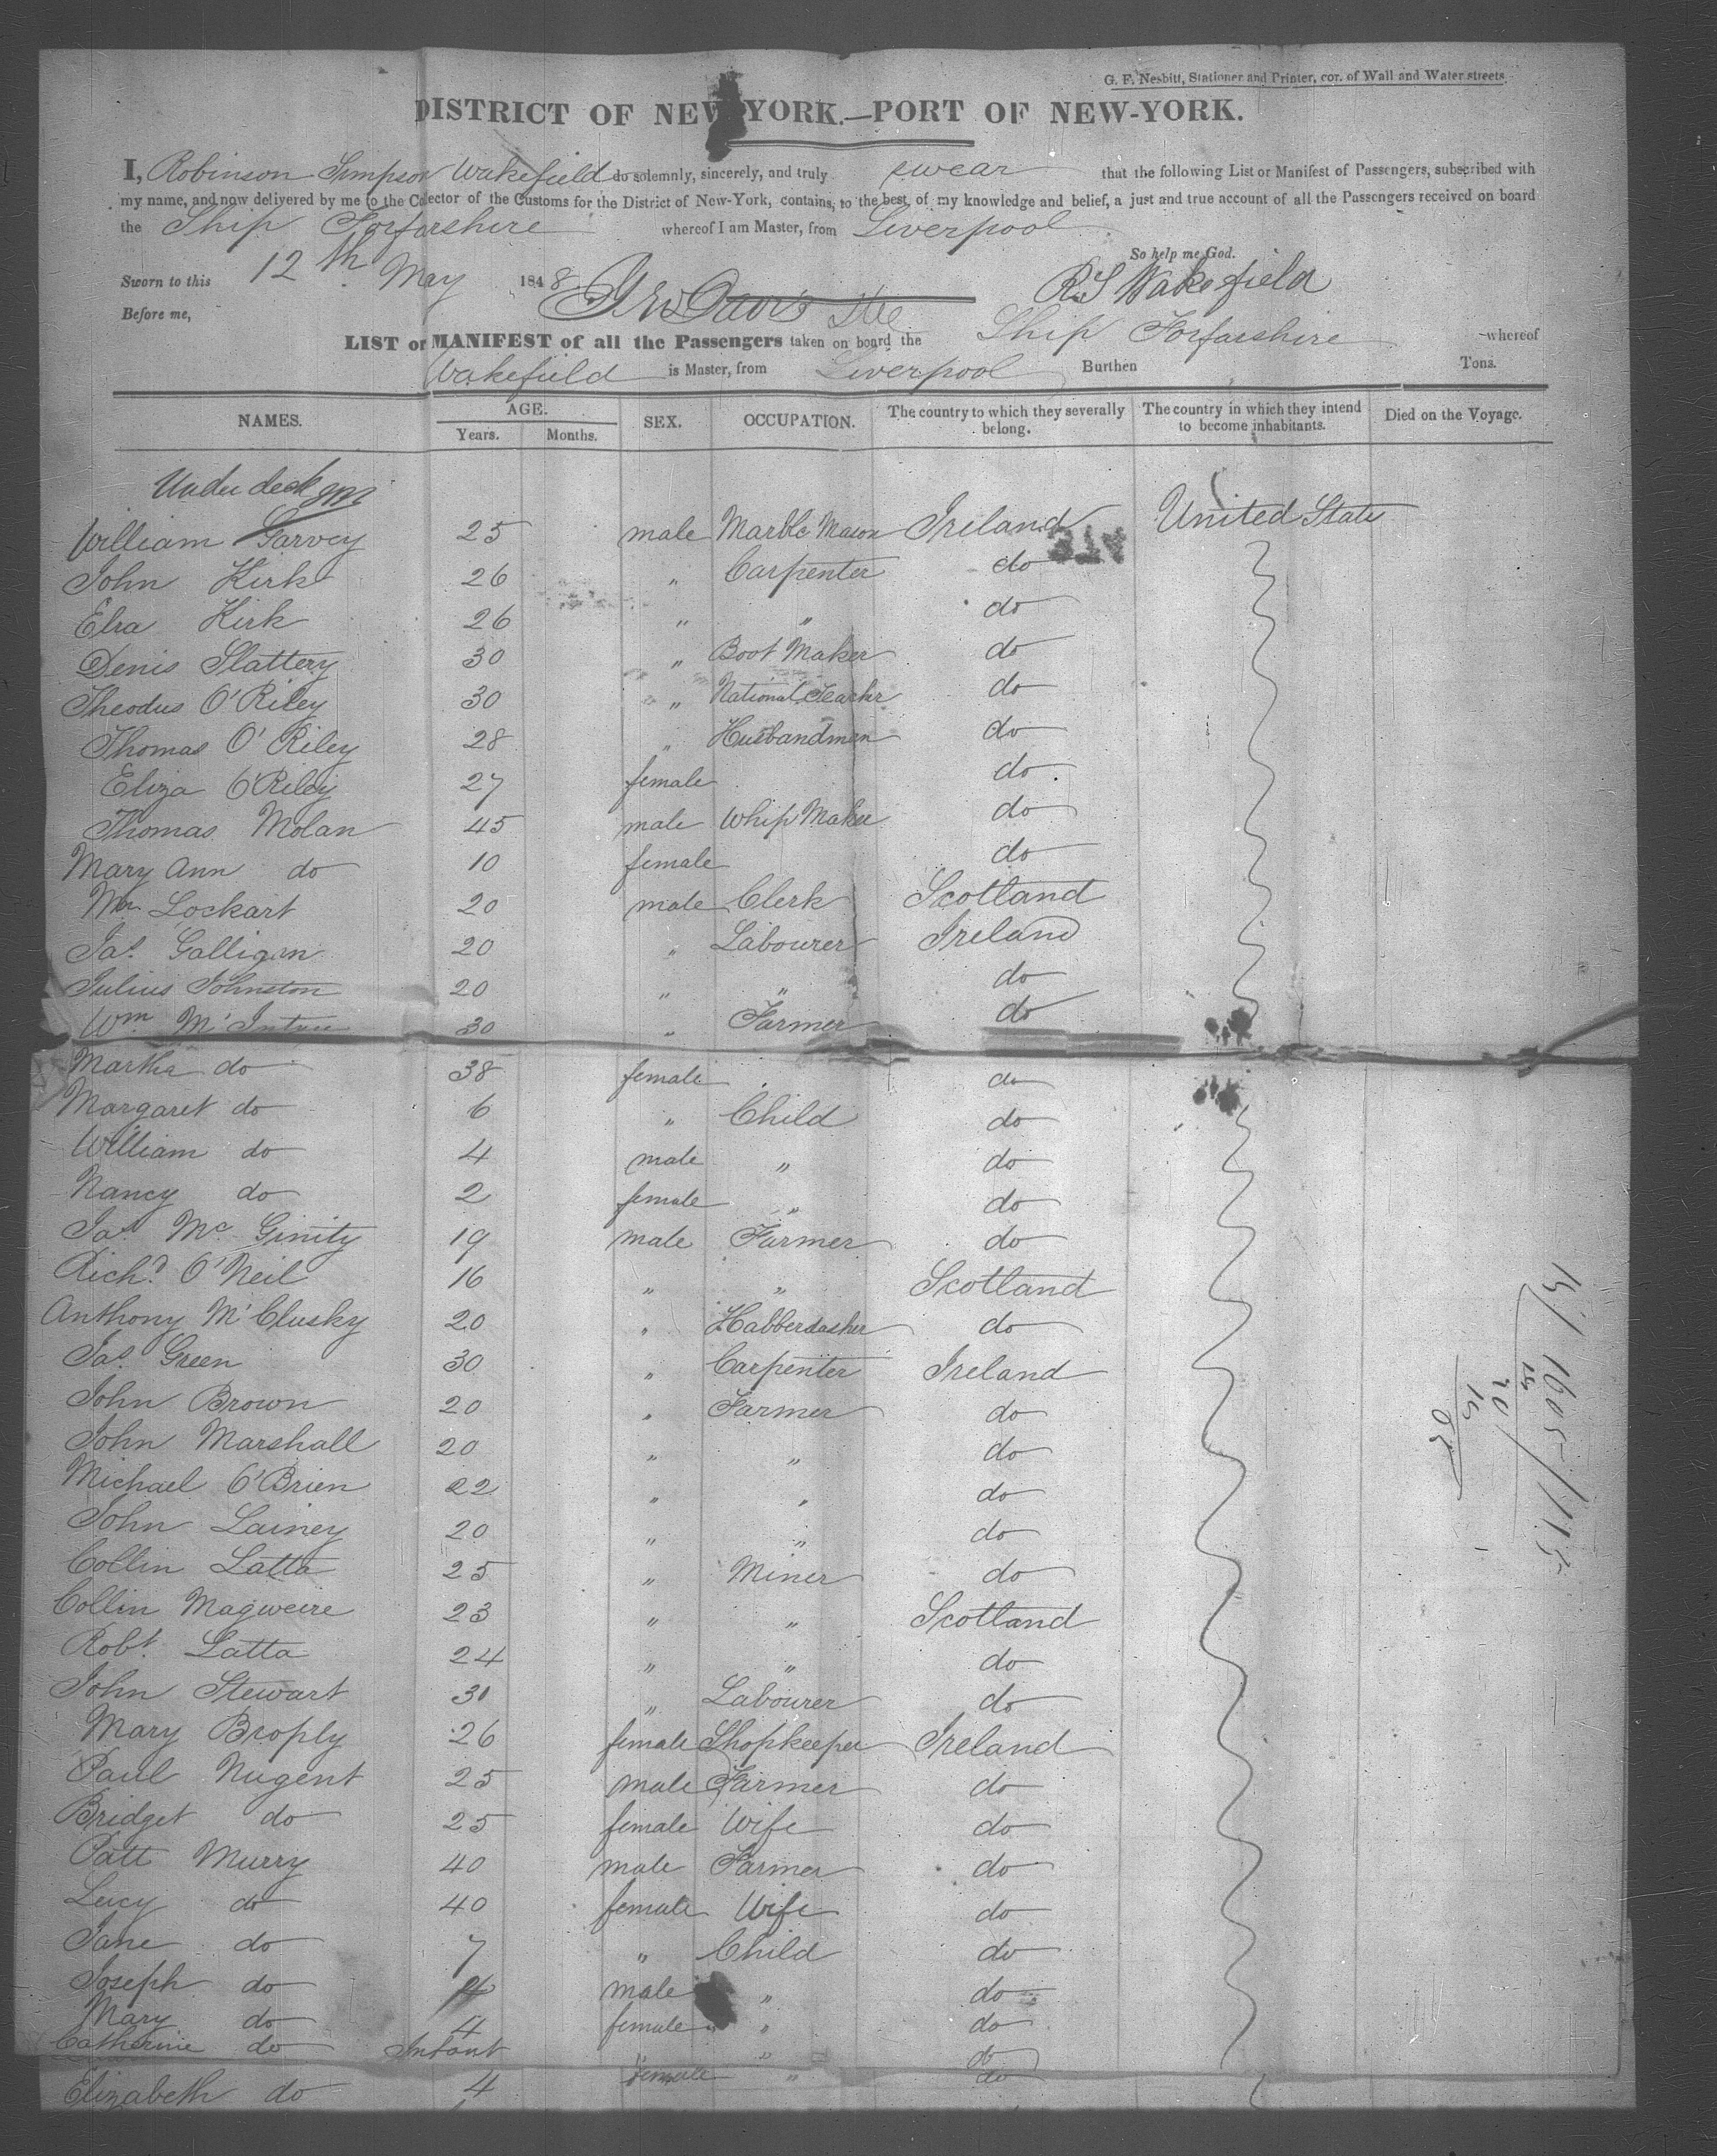 G. F. Nesbitt, Stationer and Printer, cor. of Wall and Water streets
DISTRICT OF NEW YORK.—PORT OF NEW-YORK.
I, Robinson Simpson Wakefield do solemnly, sincerely, and truly swear that the following List or Manifest of Passengers, subscribed with
my name, and now delivered by me to the Collector of the Customs for the District of New-York, contains, to the best of my knowledge and belief, a just and true account of all the Passengers received on board
the Ship Forfarshire whereof I am Master, from Liverpool
So help me God.
Sworn to this 12th May 1848 R S Wakefield
Before me,
LIST or MANIFEST of all the Passengers taken on board the Ship Forfarshire whereof
Wakefield is Master, from Liverpool Burthen Tons.
NAMES. AGE. Years. Months. SEX. OCCUPATION. The country to which they severally belong. The country in which they intend to become inhabitants. Died on the Voyage.
Under deck
William Garvey 25 male Marble Mason Ireland United States
John Kirk 26 " Carpenter do
Elra Kirk 26 " " do
Denis Slattery 30 " Boot Maker do
Theodus O'Riley 30 " National Teacher do
Thomas O'Riley 28 " Husbandman do
Eliza O'Riley 27 female do
Thomas Molan 45 male Whip Maker do
Mary Ann do 10 female do
Wm Lockart 20 male Clerk Scotland
Jas. Galligan 20 " Labourer Ireland
Julius Johnston 20 " " do
Wm McIntire 30 " Farmer do
Martha do 38 female do
Margaret do 6 " Child do
William do 4 male " do
Nancy do 2 female " do
Jas Mc Ginity 19 male Farmer do
Richd O'Neil 16 " " Scotland
Anthony M'Clusky 20 " Habberdasher do
Jas Green 30 " Carpenter Ireland
John Brown 20 " Farmer do
John Marshall 20 " " do
Michael O'Brien 22 " " do
John Lainey 20 " " do
Collin Latta 25 " Miner do
Collin Magweire 23 " " Scotland
Robt. Latta 24 " " do
John Stewart 31 " Labourer do
Mary Broply 26 female Shopkeeper Ireland
Paul Nugent 25 male Farmer do
Bridget do 25 female Wife do
Patt Murry 40 male Farmer do
Lucy do 40 female Wife do
Jane do 7 " Child do
Joseph do 4 male " do
Mary do 4 female " do
Catherine do Infant " " do
Elizabeth do 4 female " do